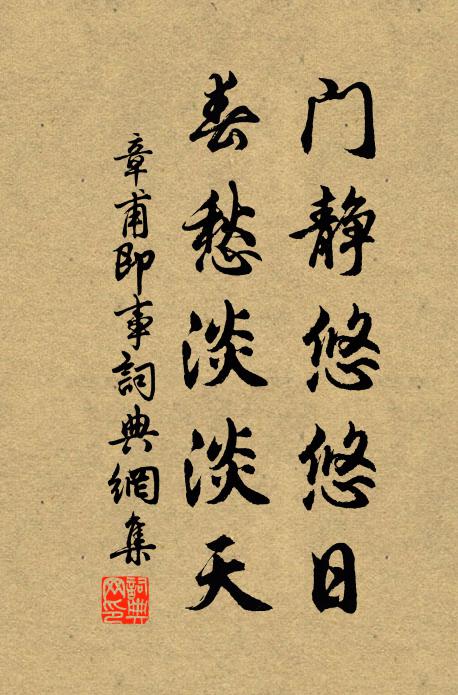 门静悠悠日
春愁淡淡天
章甫即事詞典網集
詞典
网印